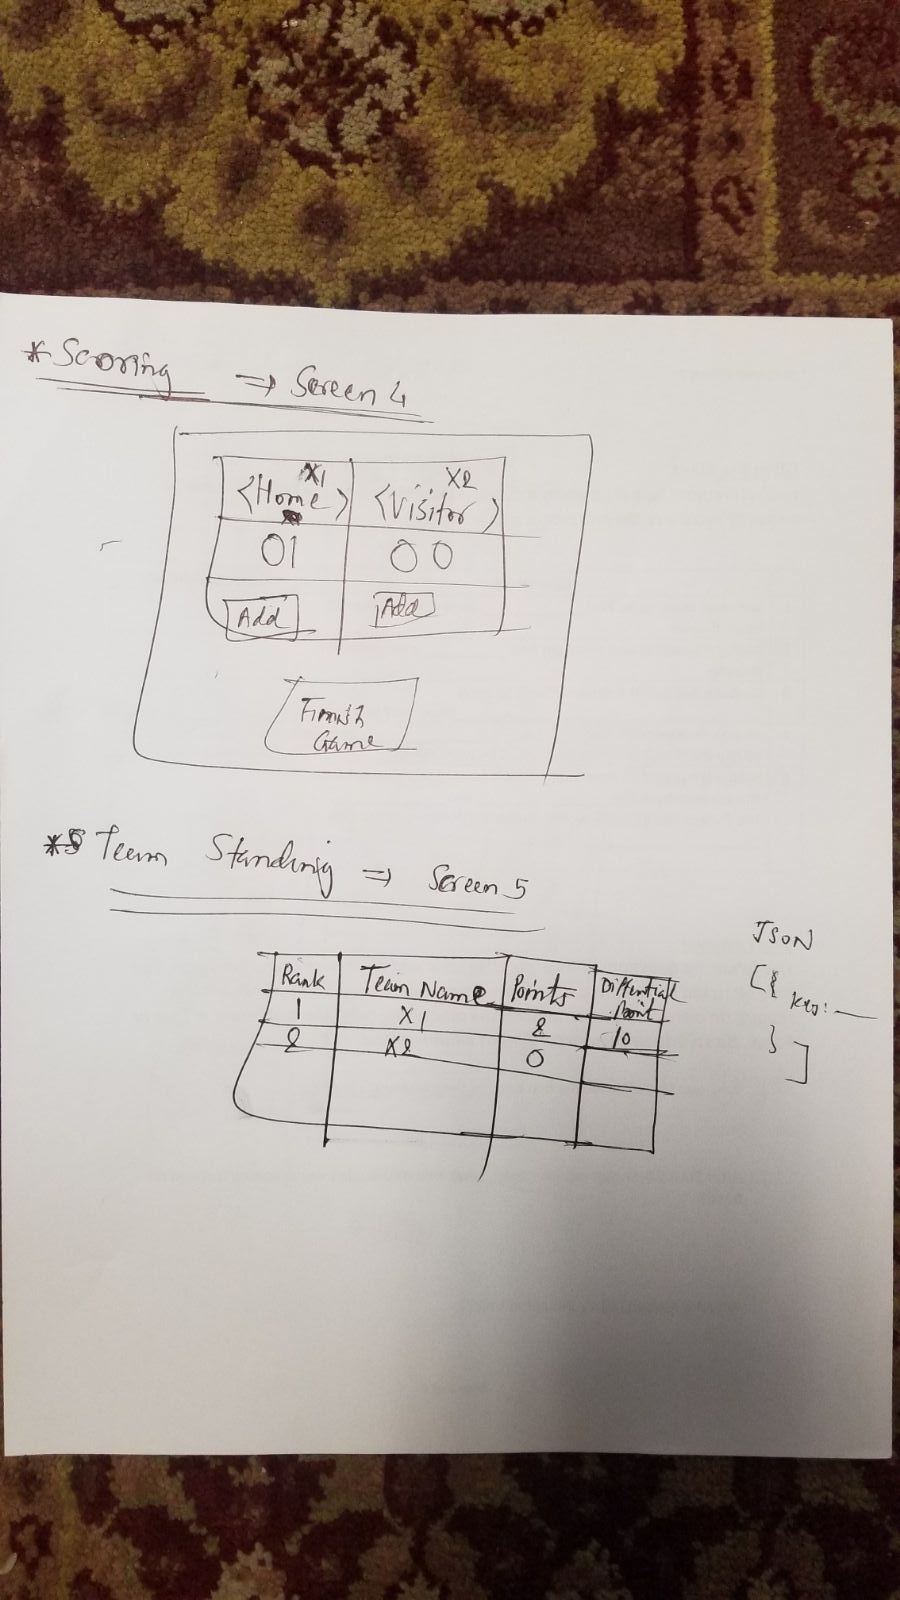 * Scoring => Screen 4
X1 X2
<Home> <Visitor>
01 00
Add Add
Finish
Game
* Team Standing => Screen 5
JSON
[{
key: —
}
]
Rank Team Name Points Differential Point
1 X1 2 10
2 X2 0